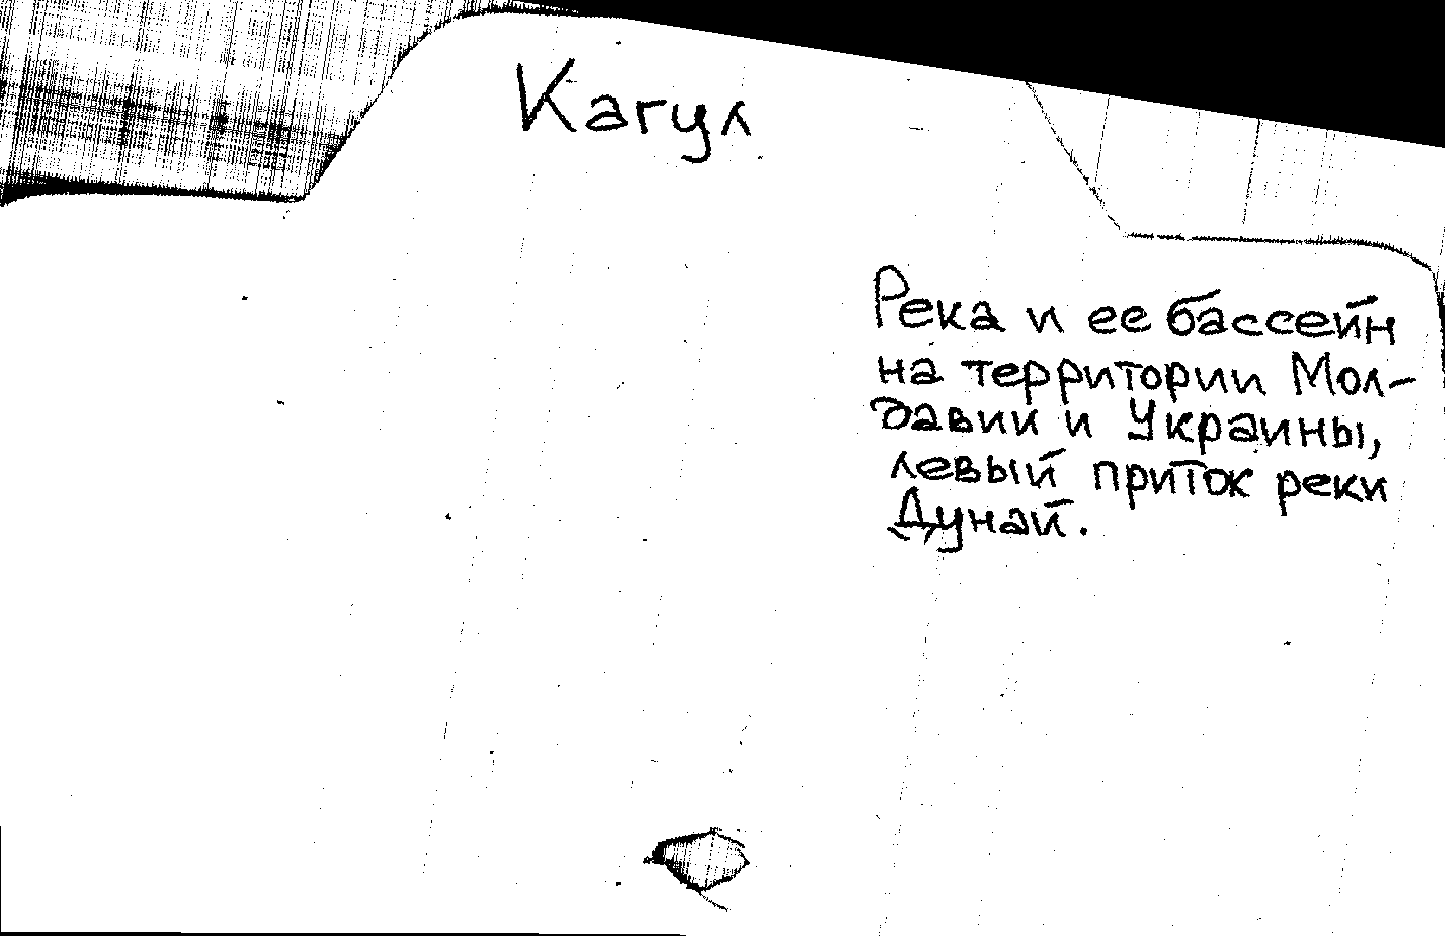 Кагул
Река и ее бассейн
на территории Мол-
давии и Украины,
левый приток реки
Дунай.